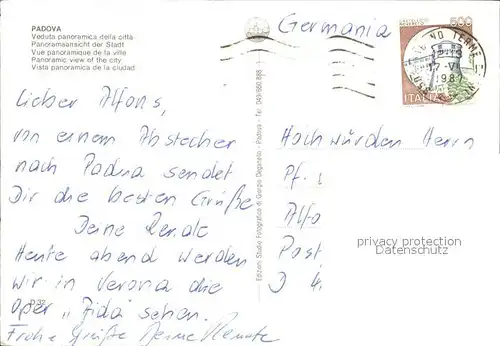 PADOVA
Veduta panoramica della città
Panoramaansicht der Stadt
Vue panoramique de la ville
Panoramic view of the city
Vista panoramica de la ciudad
Germania
500
ITALIA
1987
Lieber Alfons,
von einem Abstecher
nach Padua sendet
Dir die besten Grüße
Deine Renate
Heute abend werden
wir in Verona die
Oper „Aida" sehen.
Frohe Grüße
Edizioni Studio Fotografico di Giorgio Deganello - Padova - Tel. 049/680.888
Hochwürden Herrn
Pf.
Alfo
Post
D 4
privacy protection
VintagePostcards.com